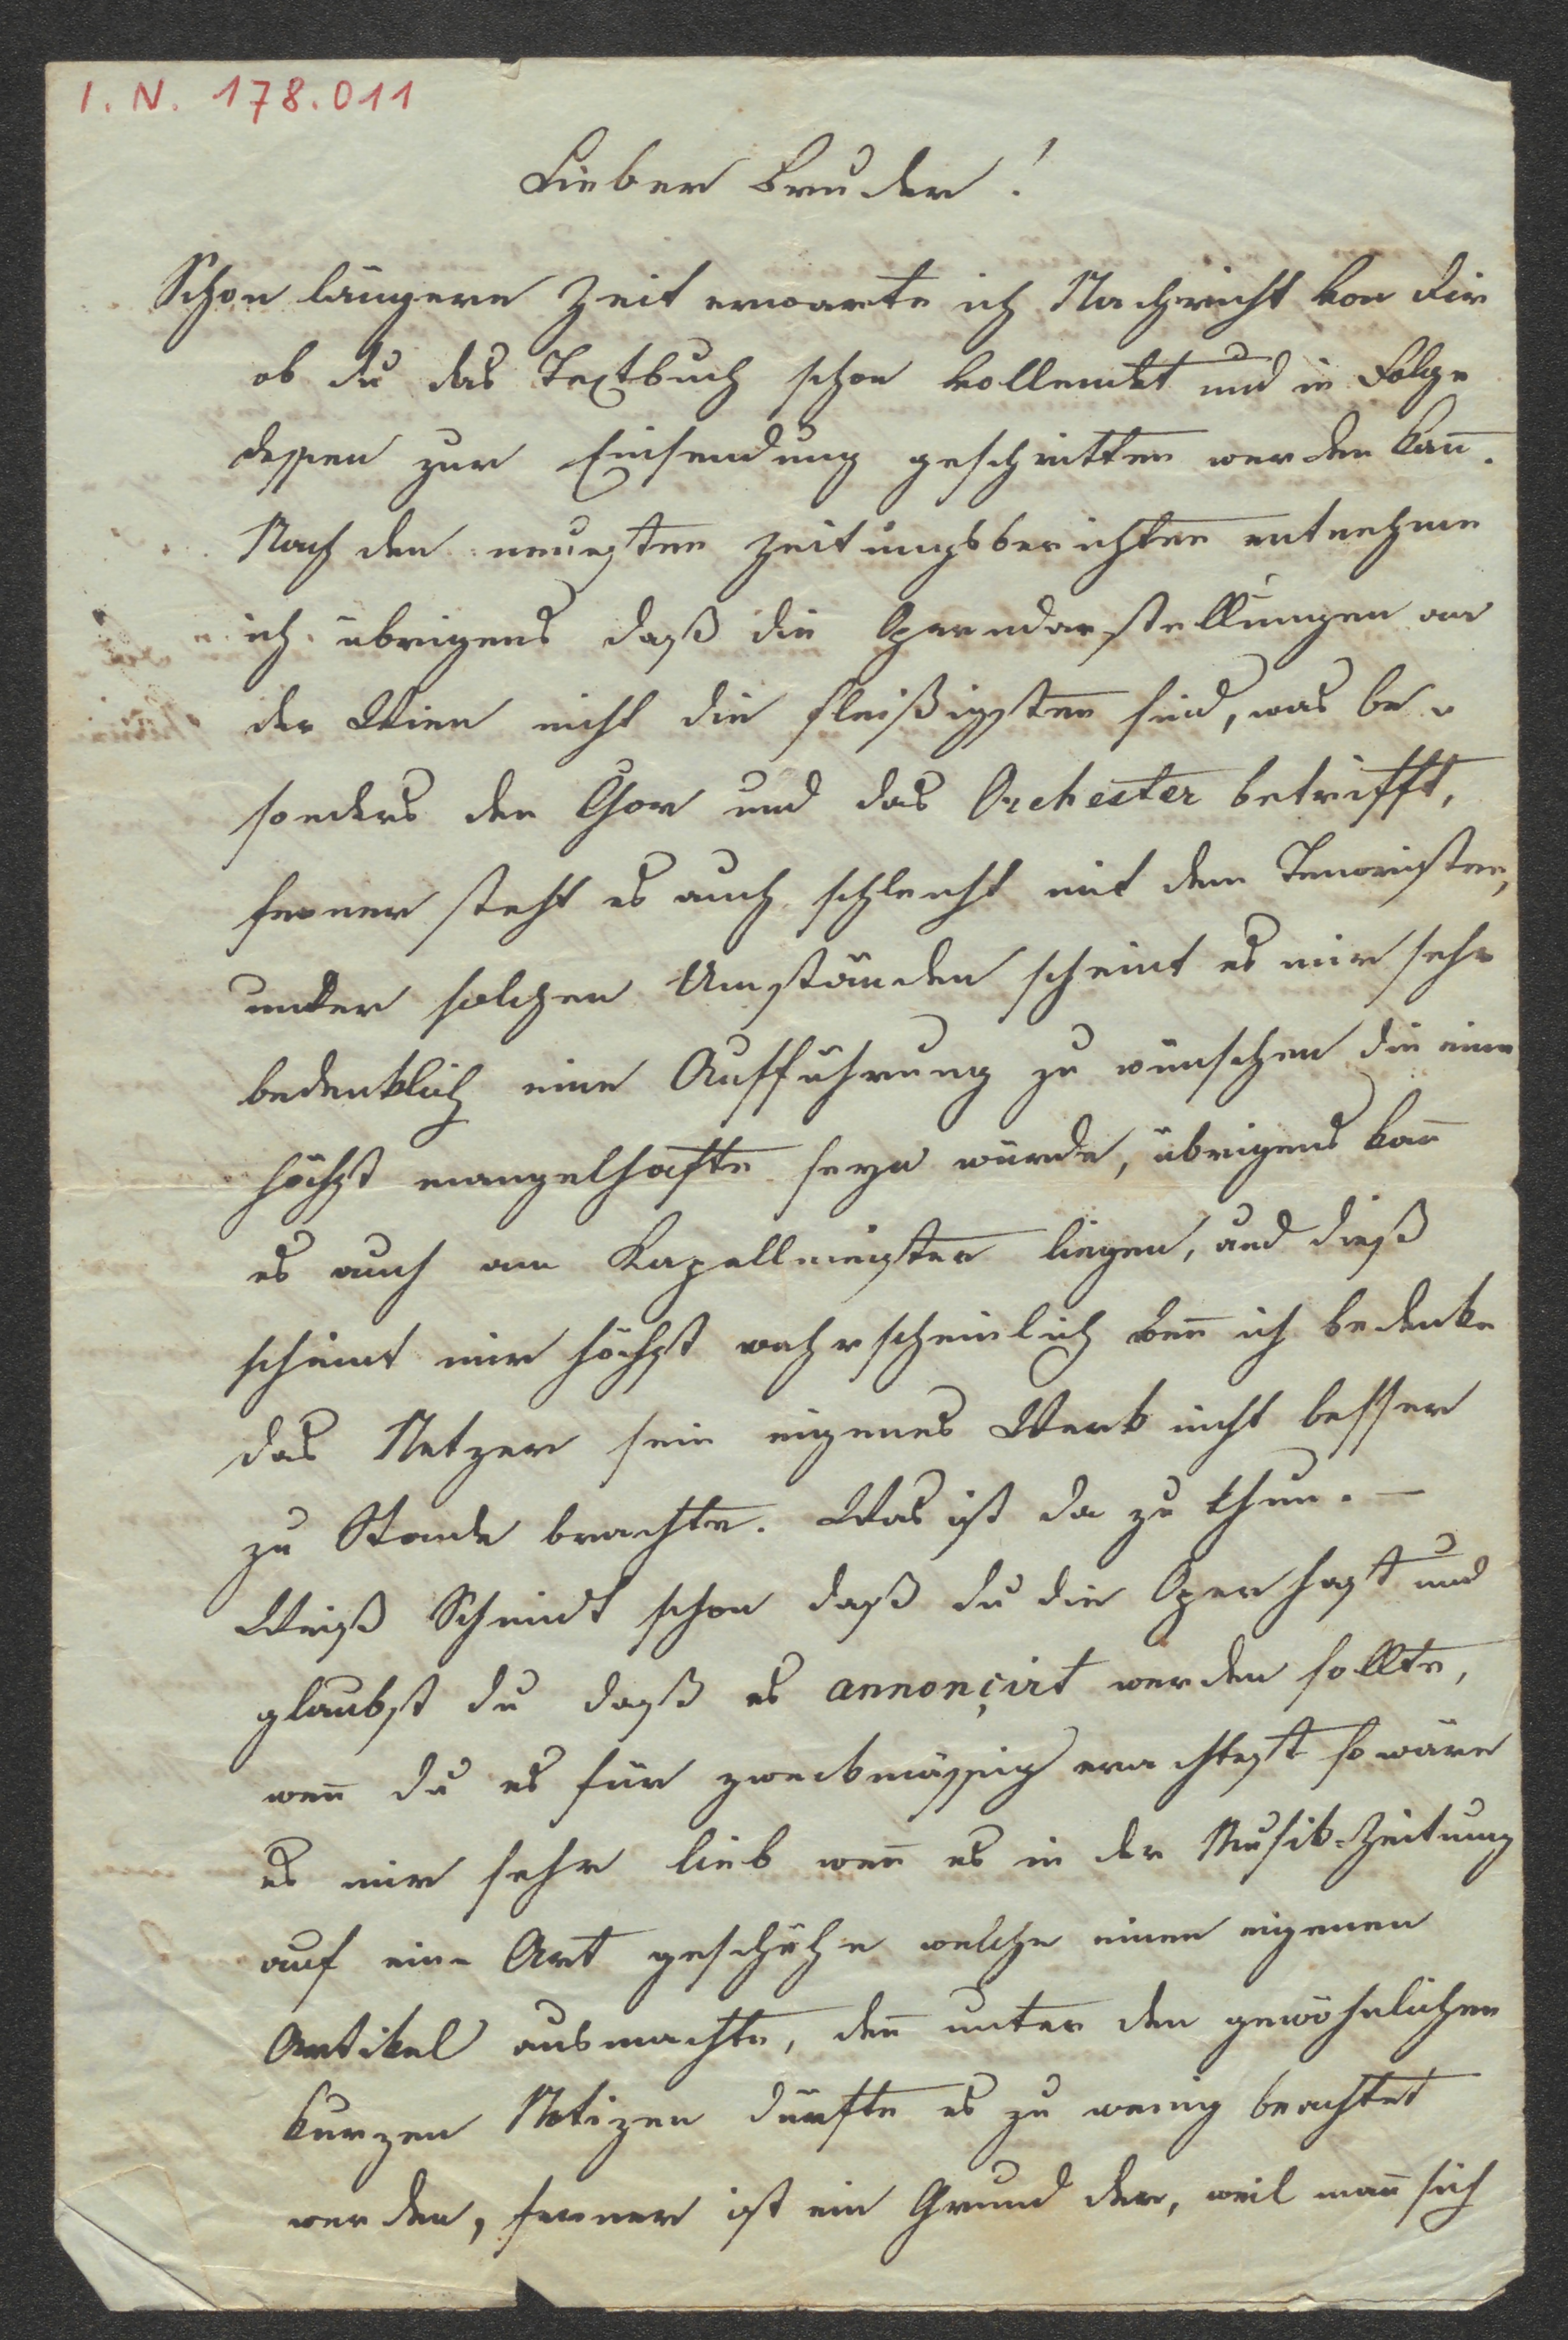 I. N. 178.011
Lieber Bruder!
Schon längere Zeit erwarte ich Nachricht von dir
ob du das Textbuch schon vollendet und in Folge
dessen zur Einsendung geschritten werden kan̄.
Nach den neuesten Zeitungsberichten entnehme
ich übrigens daß die Operndarstellungen an
der Wien nicht die fleißigsten sind, was be-
sonders den Chor und das Orchester betrifft,
ferner steht es auch schlecht mit dem Tenoristen,
unter solchen Umständen scheint es mir sehr
bedenklich eine Aufführung zu wünschen die eine
höchst mangelhafte seyn würde, übrigens kan̄
es auch am Kapellmeister liegen, und dieß
scheint mir höchst wahrscheinlich wen̄ ich bedenke
das Netzer sein eigenes Werk nicht besser
zu Stande brachte. Was ist da zu thun. —
Weiß Schmidt schon daß du die Oper hast und
glaubst du daß es annonçirt werden sollte,
wen̄ du es für zweckmässig erachtest so wäre
es mir sehr lieb wen̄ es in der Musik-Zeitung
auf eine Art geschähe welche einen eigenen
Artikel ausmachte, den̄ unter den gewöhnlichen
kurzen Notizen dürfte es zu wenig beachtet
werden, ferner ist ein Grund der, weil man̄ sich